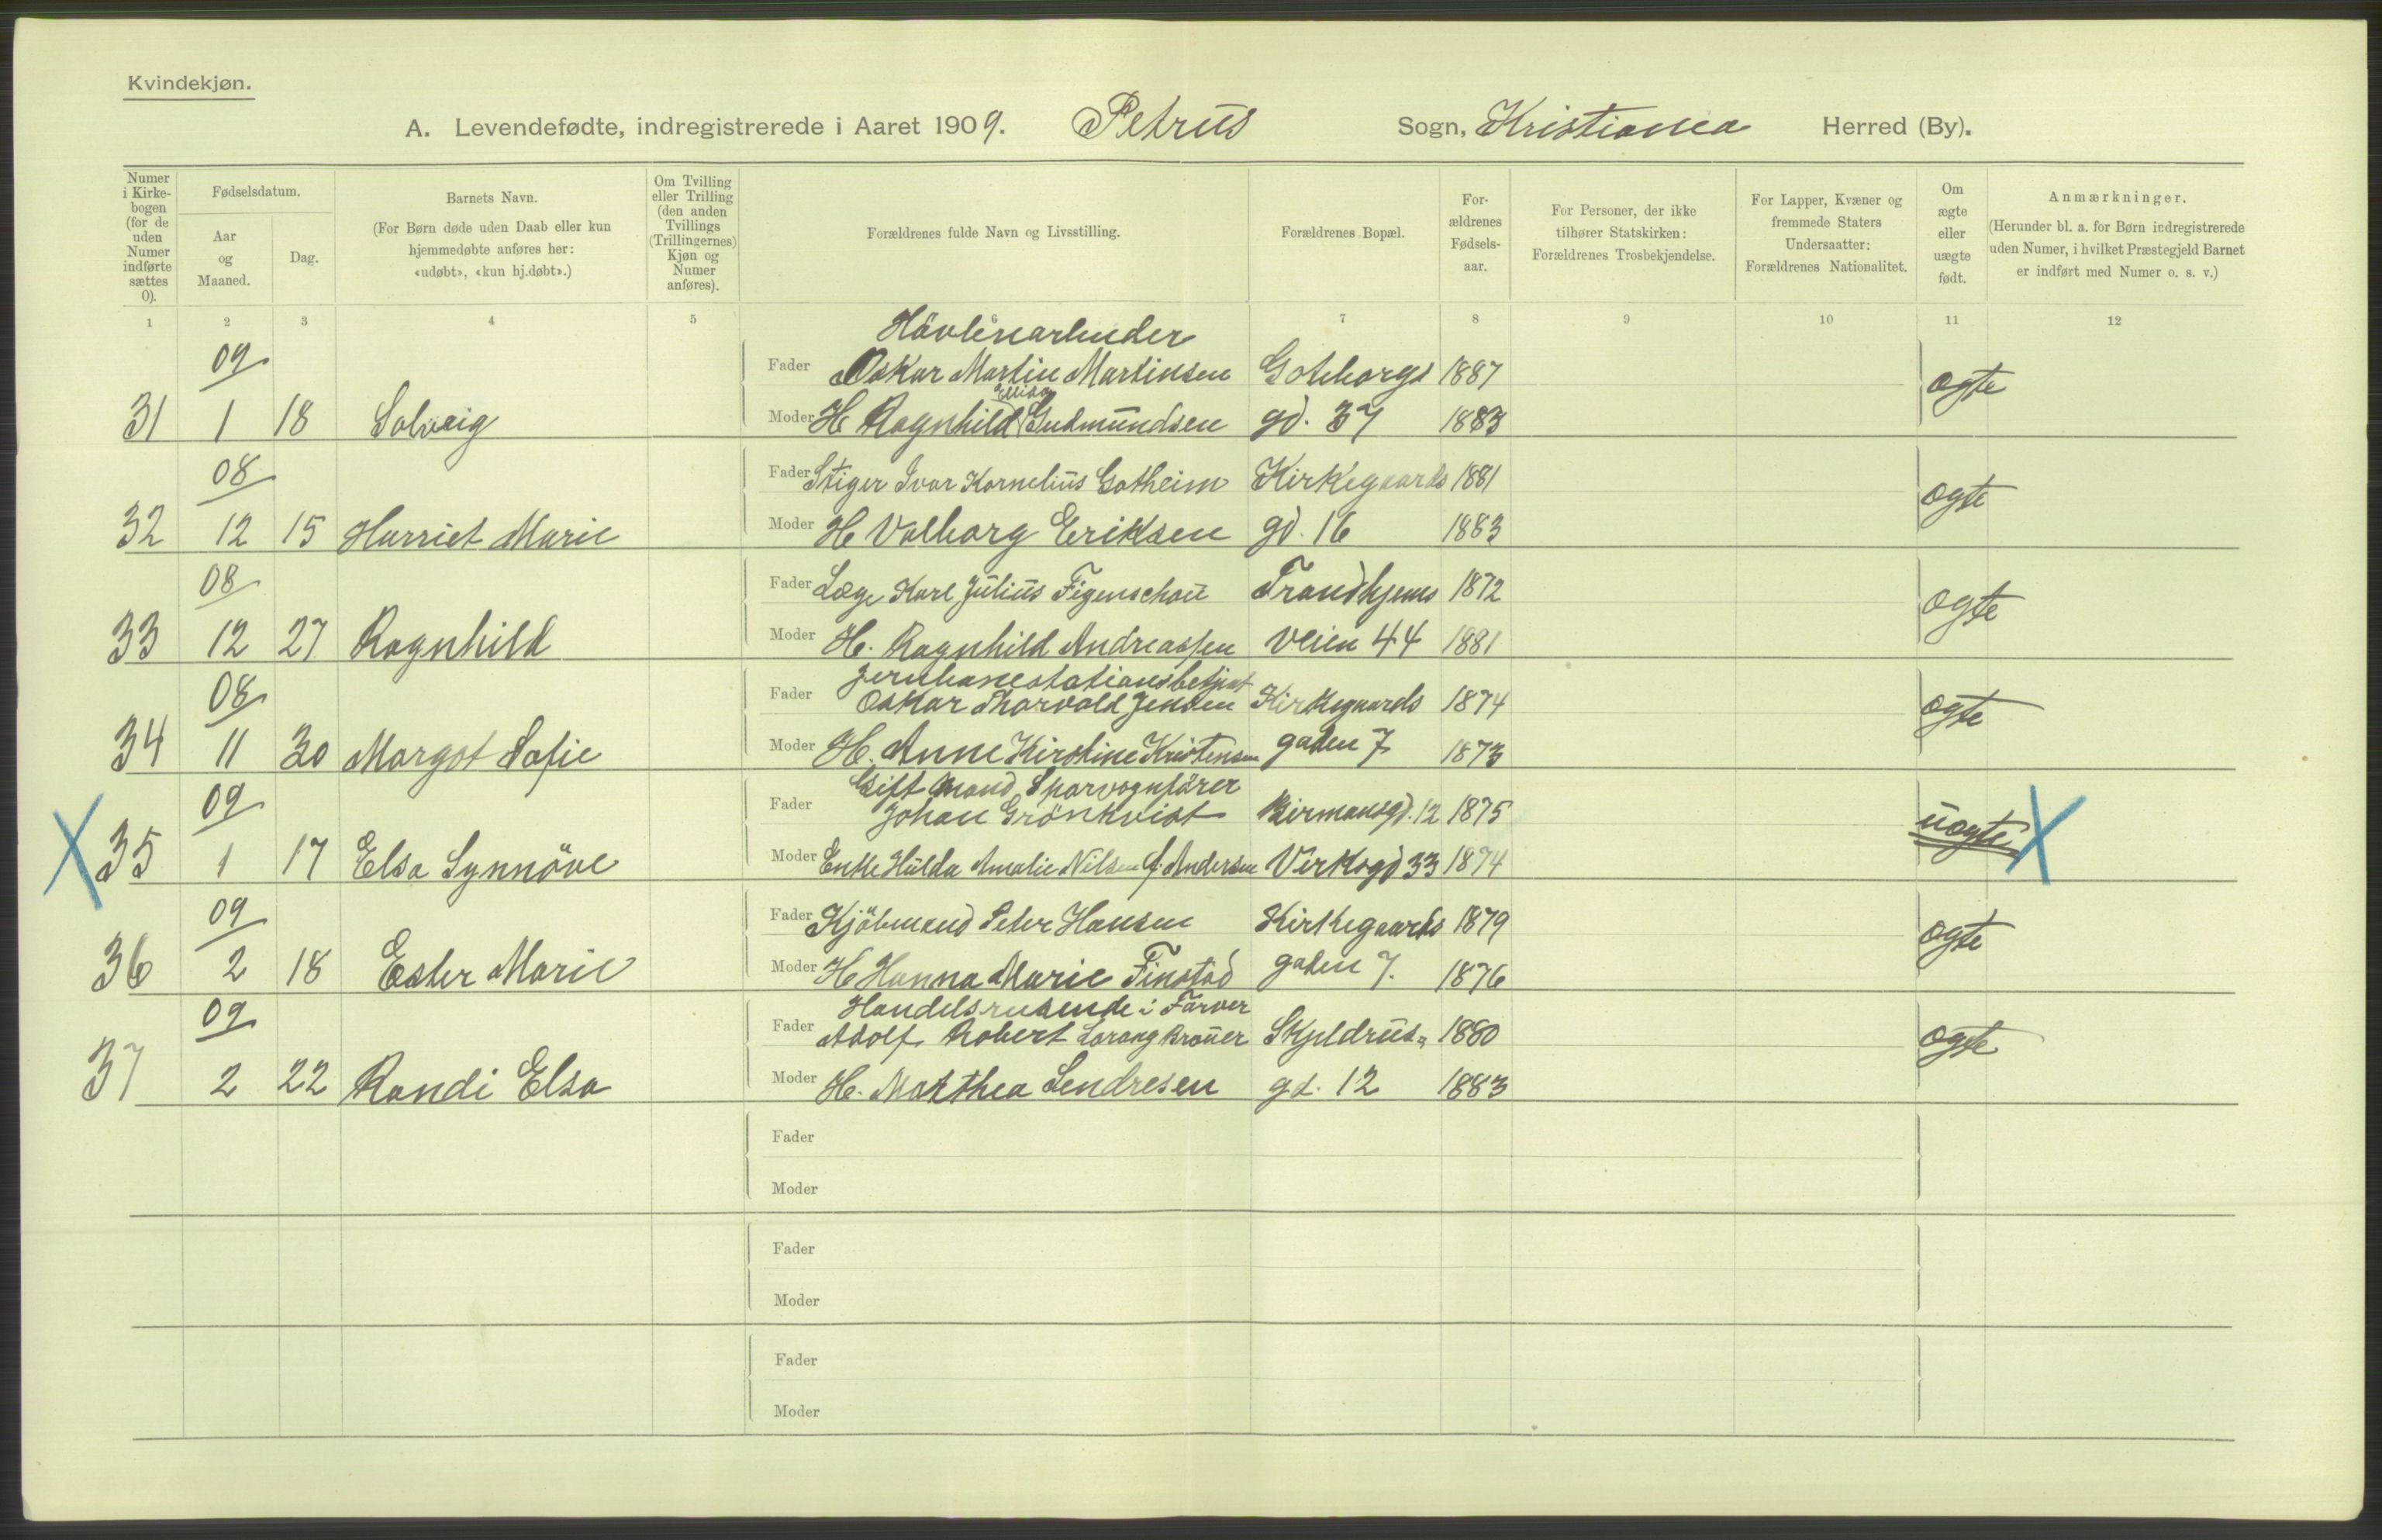 Kvindekjøn.
A. Levendefødte, indregistrerede i Aaret 1909. Petrus Sogn, Kristiania Herred (By).
Numer i Kirkebogen (for de uden Numer indførte sættes 0).
Fødselsdatum.
Aar og Maaned.
Dag.
Barnets Navn.
(For Børn døde uden Daab eller kun hjemmedøbte anføres her: «udøbt», «kun hj.døbt».)
Om Tvilling eller Trilling (den anden Tvillings (Trillingernes) Kjøn og Numer anføres).
Forældrenes fulde Navn og Livsstilling.
Forældrenes Bopæl.
Forældrenes Fødselsaar.
For Personer, der ikke tilhører Statskirken: Forældrenes Trosbekjendelse.
For Lapper, Kvæner og fremmede Staters Undersaatter: Forældrenes Nationalitet.
Om ægte eller uægte født.
Anmærkninger.
(Herunder bl. a. for Børn indregistrerede uden Numer, i hvilket Præstegjeld Barnet er indført med Numer o. s. v.)
1 2 3 4 5 6 7 8 9 10 11 12
Hövleriarbeider
09 Fader Oskar Martin Martinsen Goteborgs 1887 ægte
Ellida
31 1 18 Solveig Moder H Ragnhild Gudmundsen gd. 37 1883
08 Fader Stiger Ivar Kornelius Gotheim Kirkegaards 1881 ægte
32 12 15 Harriet Marie Moder H Valborg Eriksen gd. 16 1883
08 Fader Læge Karl Julius Figenschou Trondhjems 1872 ægte
33 12 27 Ragnhild Moder H. Ragnhild Andreassen veien 44 1881
Jernbanestationsbetjent
08 Fader Oskar Thorvald Jensen Kirkegaards 1874 ægte
34 11 30 Margot Sofie Moder H. Anne Kirstine Kristensen gaden 7 1873
Gift Mand, Sporvognfører
09 Fader Johan Grönkvist Birmansgd. 12 1875 uægte X
X 35 1 17 Elsa Synnöve Moder Enke Hulda Amalie Nilsen f. Andersen Verksgd 33 1874
09 Fader Kjöbmand Peter Hansen Kirkegaards 1879 ægte
36 2 18 Ester Marie Moder H Hanna Marie Finstad gaden 7. 1876
Handelsreisende i Farver
09 Fader Adolf Robert Lorang Brouer Skjeldrus- 1880 ægte
37 2 22 Randi Elsa Moder H. Marthea Sendresen gd. 12 1883
Fader
Moder
Fader
Moder
Fader
Moder